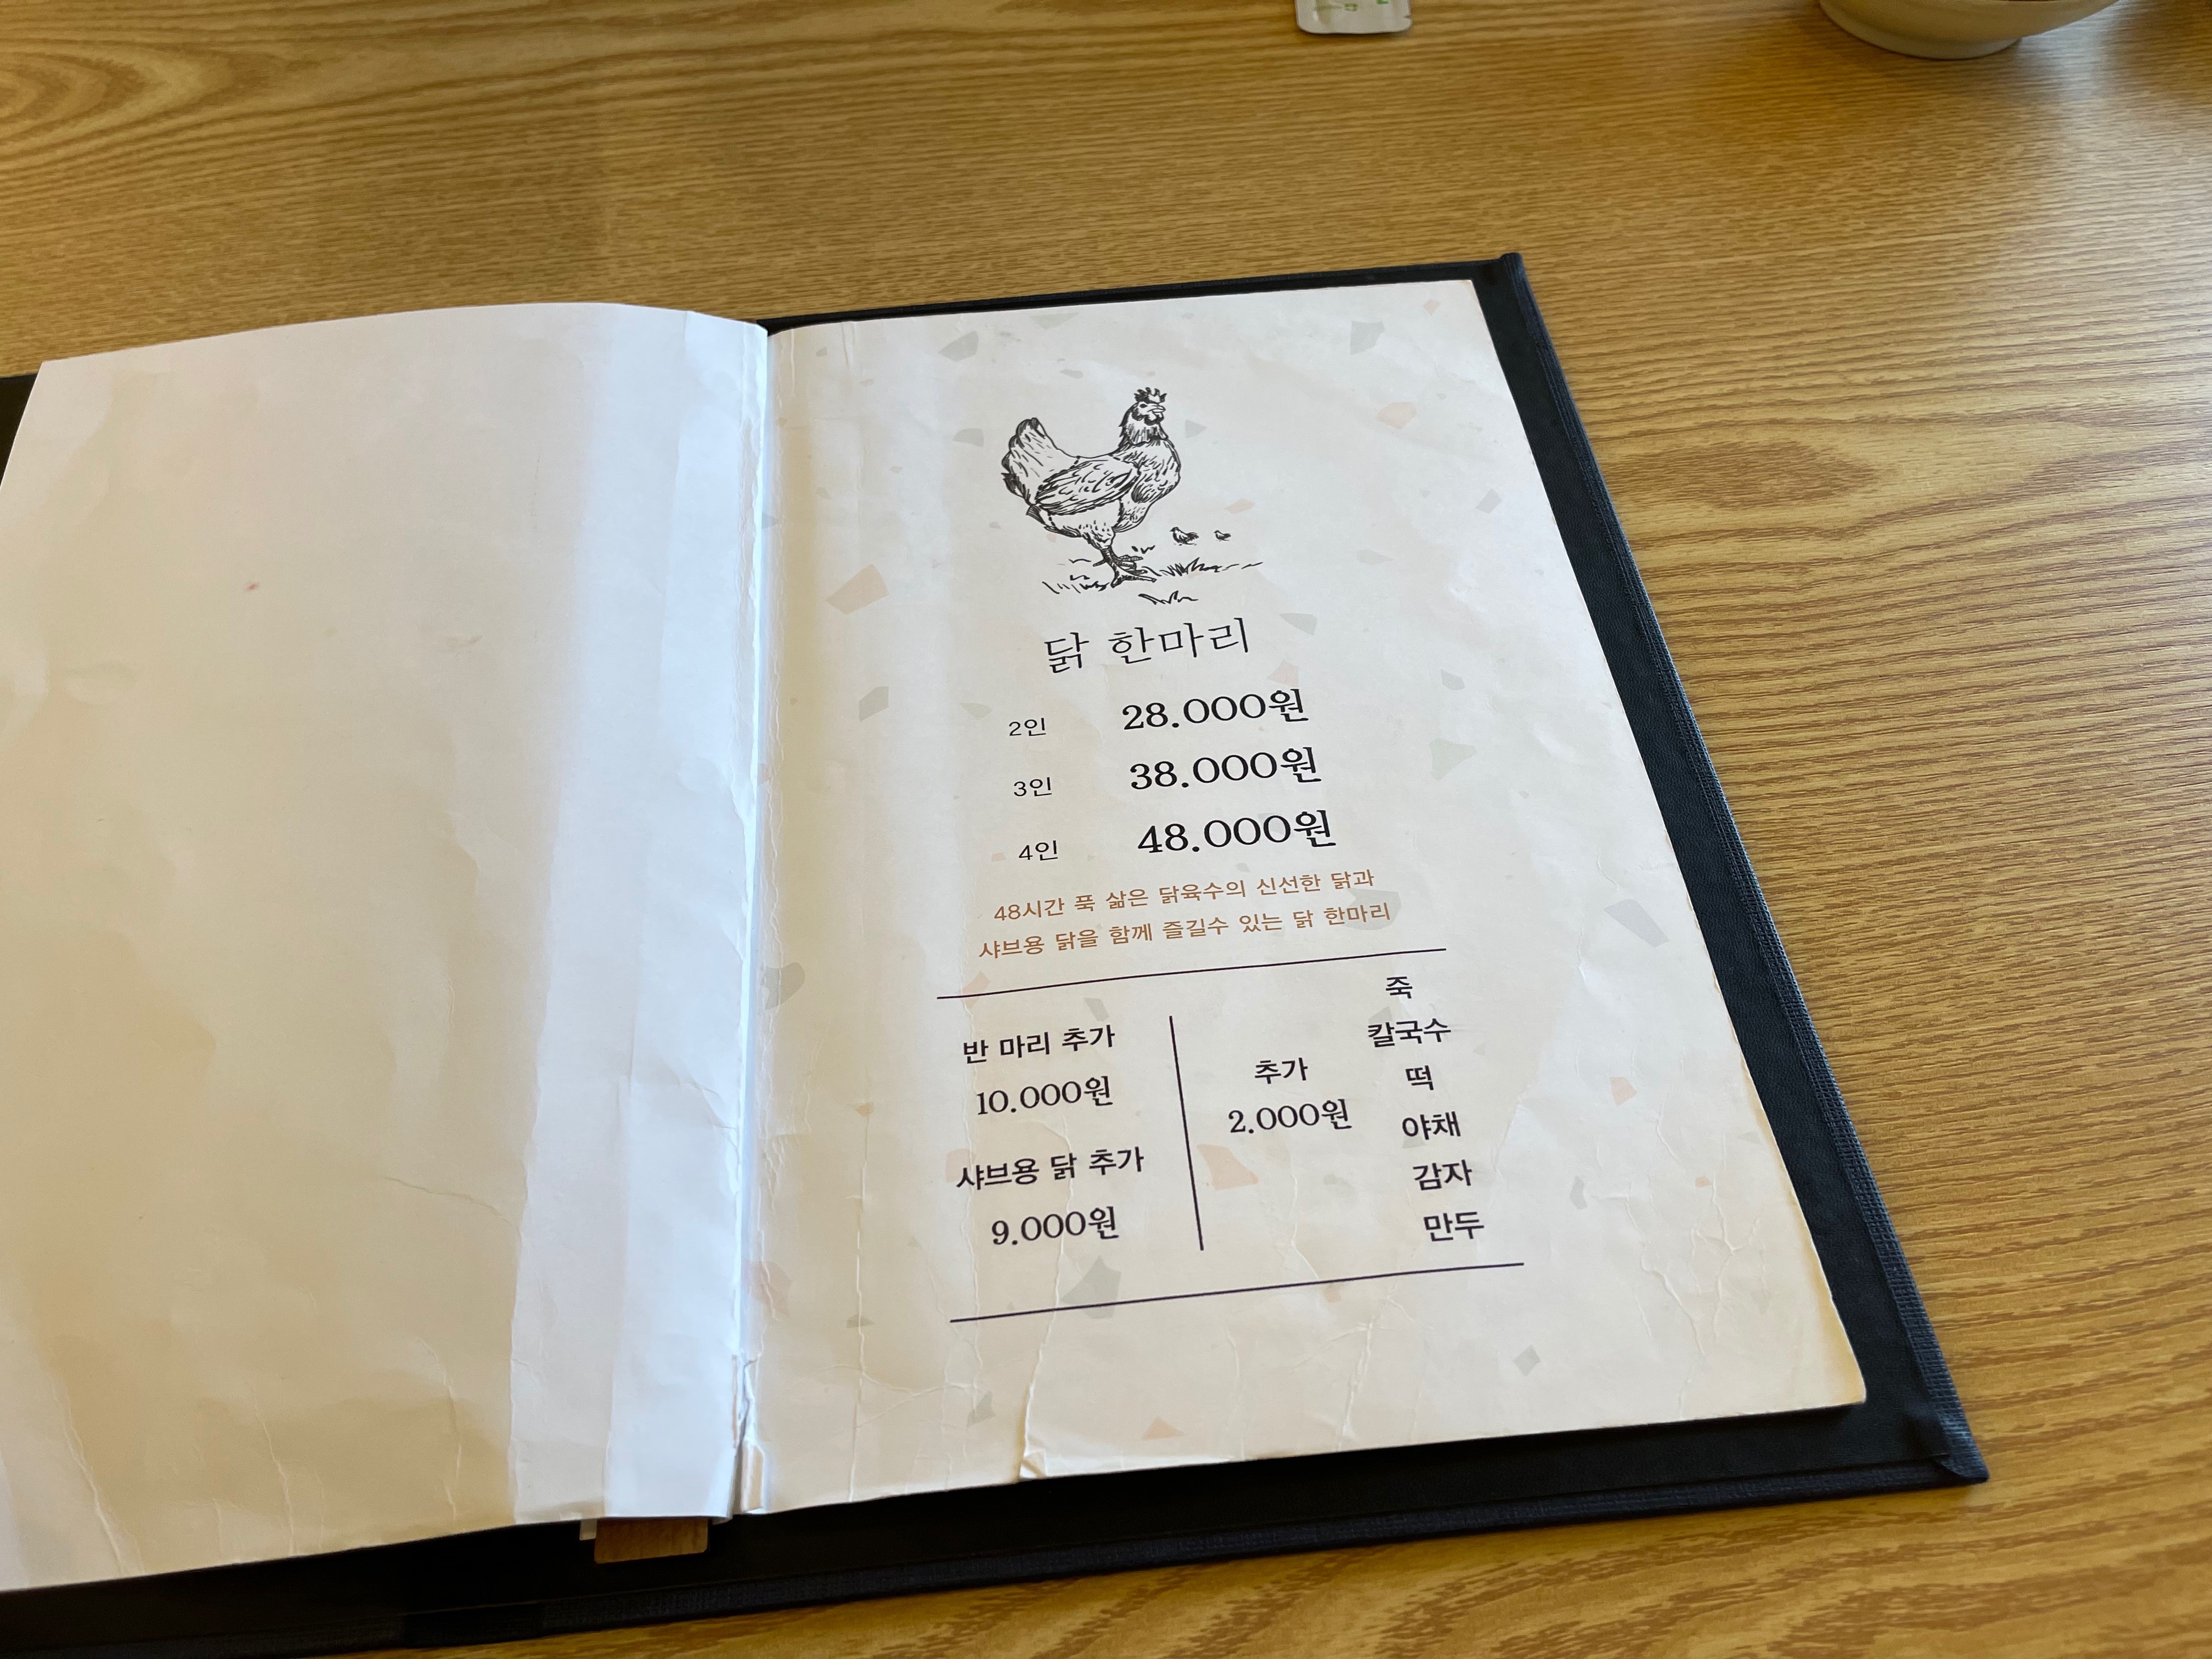 닭 한마리
2인 28.000원
3인 38.000원
4인 48.000원
48시간 푹 삶은 닭육수의 신선한 닭과
샤브용 닭을 함께 즐길수 있는 닭 한마리
반 마리 추가
10.000원
샤브용 닭 추가
9.000원
추가
2.000원
죽
칼국수
떡
야채
감자
만두